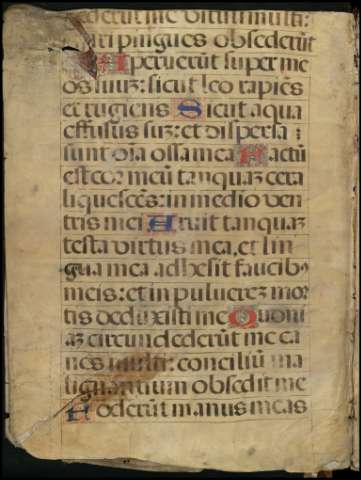 ederūt me vituli multi:
tauri pingues obsederūt
Aperuerūt super me
os suuȝ: sicut leo rapiēs
et rugiens Sicut aqua
effusus suȝ: et dispersa
sunt oīa ossa mea Factū
est cor meū tanquaȝ cera
liquescēs: in medio ven
tris mei Aruit tanquaȝ
testa virtus mea, et lin
gua mea adhesit faucibꝰ
meis: et in puluereȝ mor
tis deduxisti me Quoni
aȝ circundederūt me ca
nes multi: conciliū ma
lignantium obsedit me
Foderūt manus meas